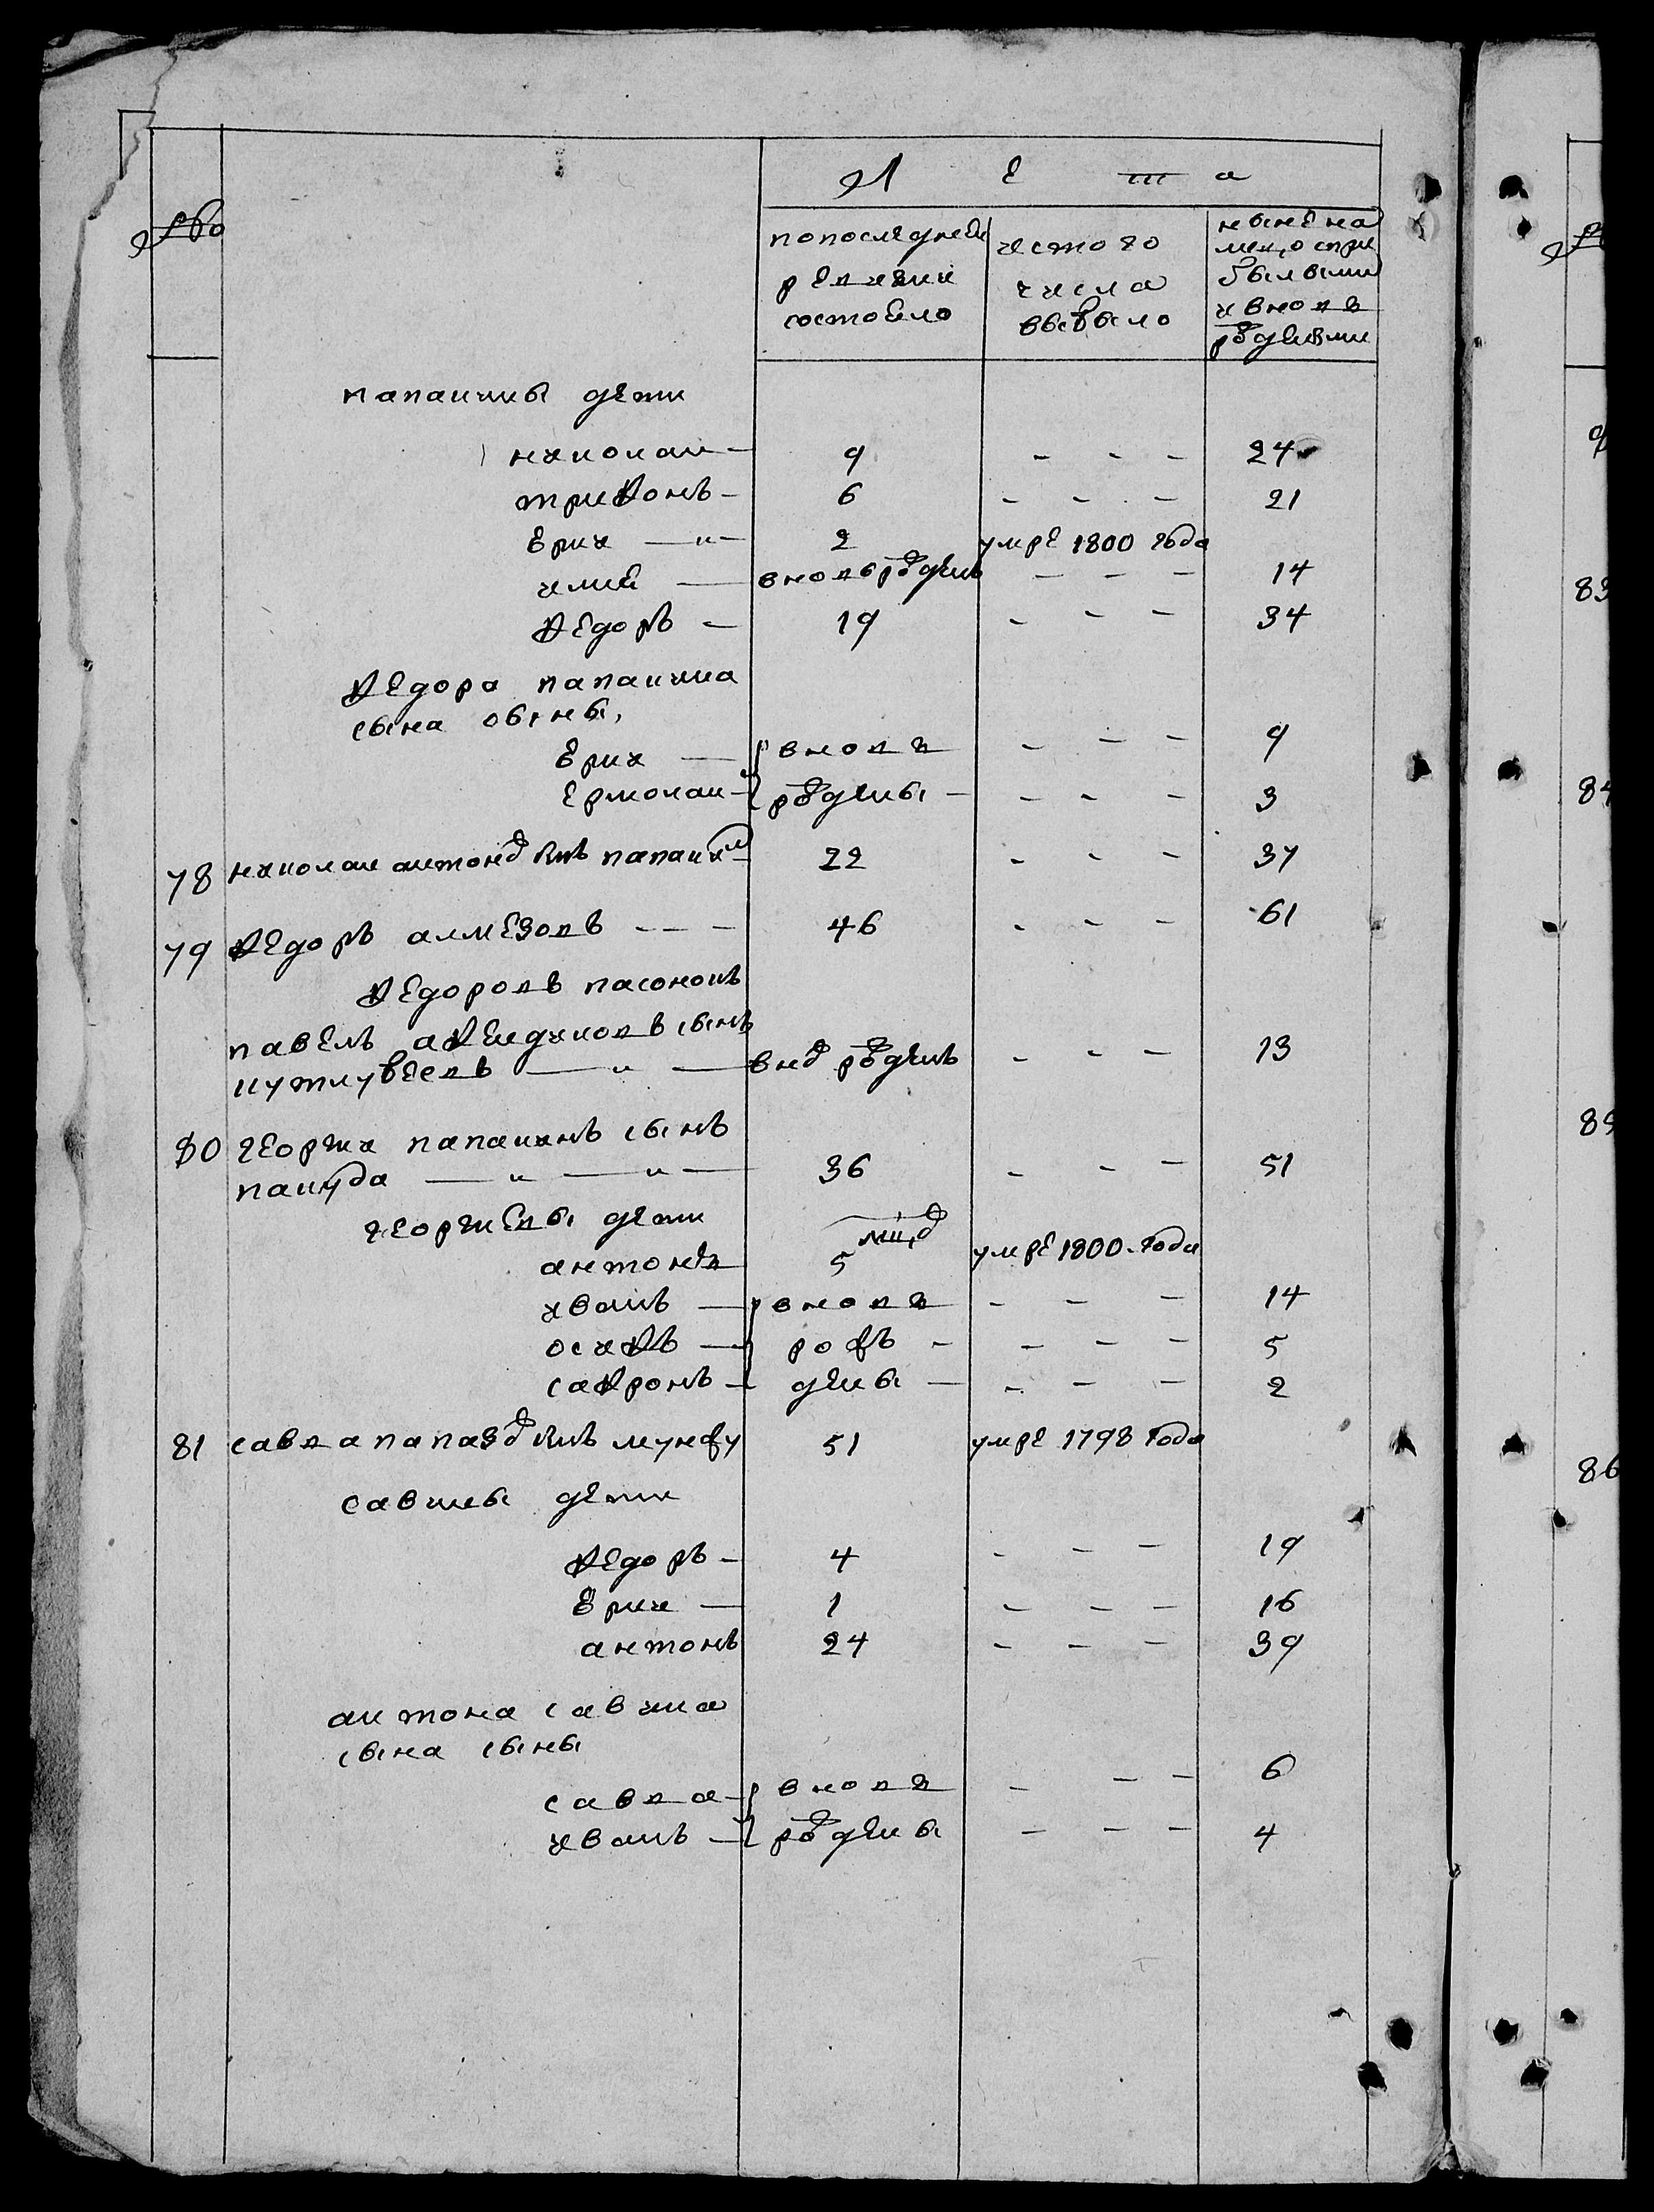 №
Л е т а
попоследней ревизии состоело
исто го числа выбыло
ныне на лицо спри былыми ивновь рожденми
папаиины дети
николаи — 9 - - - 24
трифонъ - 6 - - - 21
Ерми — " — 2 умре 1800 года
илия — вновь рожденъ - - - 14
Федоръ — 19 - - - 34
Федора папаиина
сына сыны,
Ерми — вновь - - - 9
Ермолаи — рождены - - - - 3
78 николаи антоновъ сынъ 22 - - - 37
79 Федоръ алмезовъ - - - 46 - - - 61
Федоровъ пасонокъ
павелъ сынъ
кутлубеевъ — " — внов рожденъ - - - 13
80 георги папаиинъ сынъ
— " — " — 36 - - - 51
георгиевы дети
антонъ 5 умре 1800 года
иванъ — вновь - - - 14
осифъ — рож - - - - 5
сафронъ — дены — - - - 2
81 савва сынъ 51 умре 1798 года
савины дети
Федоръ - 4 - - - 19
Ерми — 1 - - - 16
антонъ 24 - - - 39
антона савина
сына сыны
савва — вновь - - - 6
иванъ — рождены - - - 4
83
84
85
86